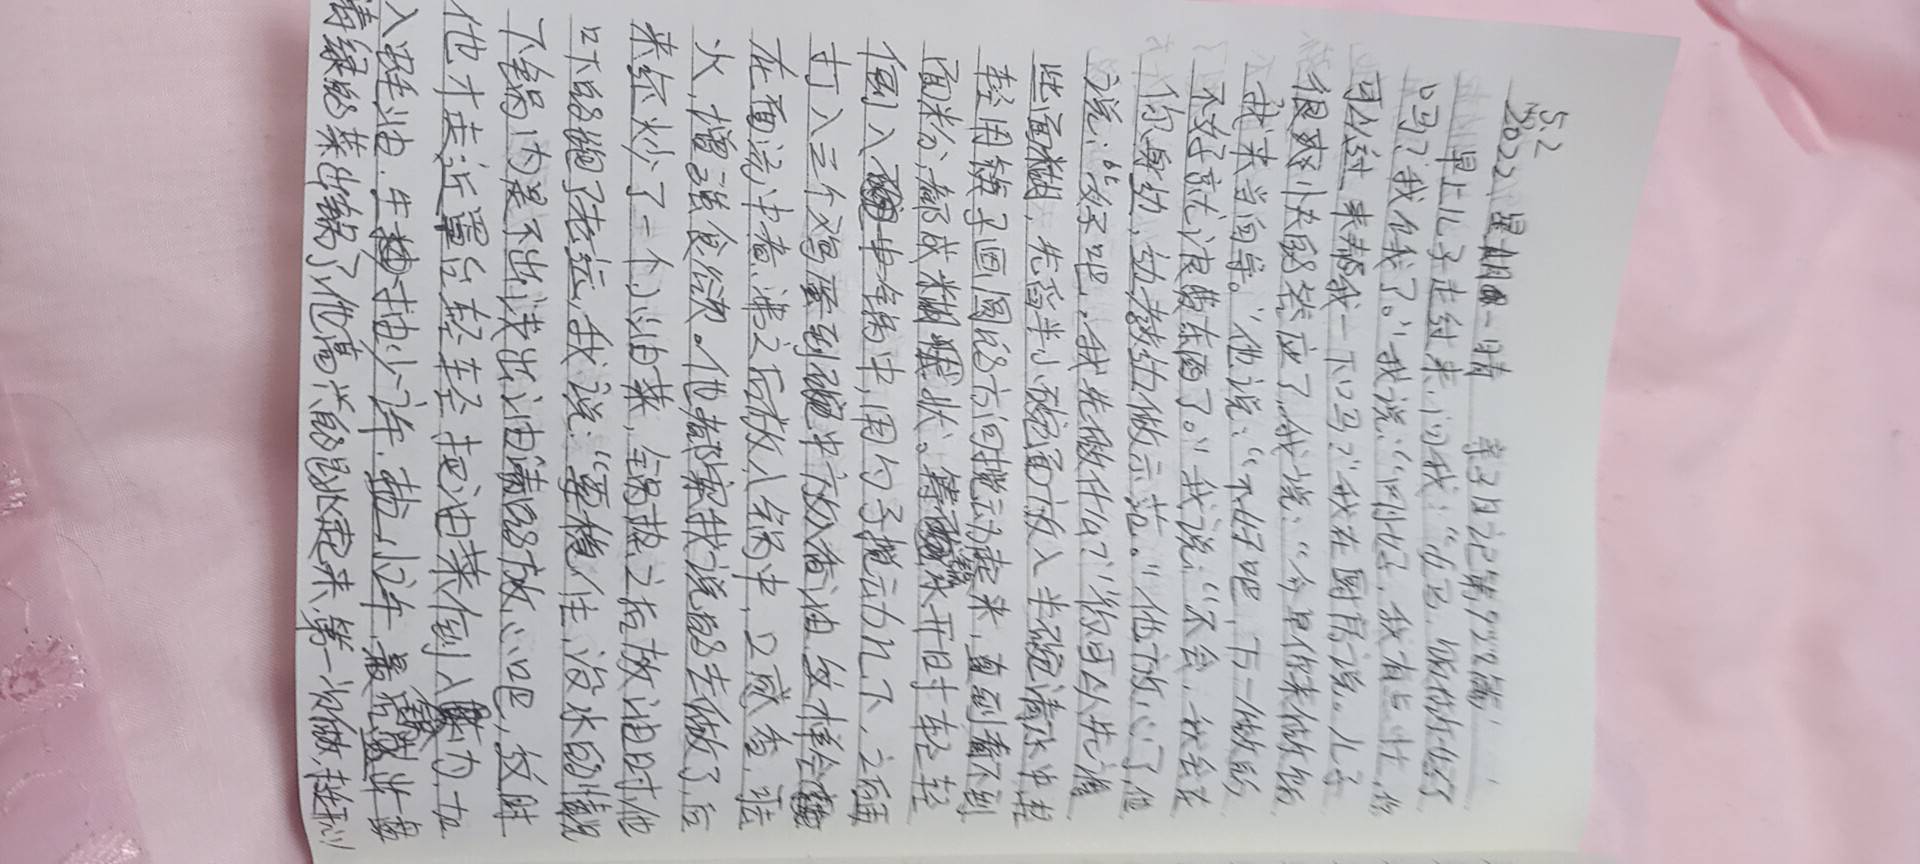 5.2
2022 星期一 晴 亲子日记第922篇
早上儿子走过来,问我:“妈,饭做好了
吗?我饿了。”我说:“刚好,我有点忙,你
可以过来帮我一下吗?”我在厨房说。儿子
很爽快的答应了,我说:“今早你来做饭
我来当向导。”他说:“不好吧,万一做的
不好就浪费东西了。”我说:“不会,我会在
你身边,边教边做示范。”他放心了但
说:“好吧。我先做什么?”“你可以先准
些面糊,先舀半小碗面放入半碗清水中轻
轻用筷子画圆的方向搅动起来,直到看不到
面粉,都成糊状。等水开时轻轻
倒入中锅中,用勺子搅动几下,之后再
打入三个鸡蛋到碗中放入香油,搅拌
在面汤中煮沸之后放入锅中,又咸香,
火,增强食欲。他都按我说的去做了,后
来尔炒了一个小油菜,锅热之后放油时他
吓的跑了老远,我说:“要稳住,没水的情况
下锅内是不出溅出油请的放心吧,这时
他才走近罩台轻轻把油菜倒入 内,加
入蚝油,生抽少许,盐少许,最后 一盘
清绿的菜出锅了他高兴的跳起来,第一次做,挺开心